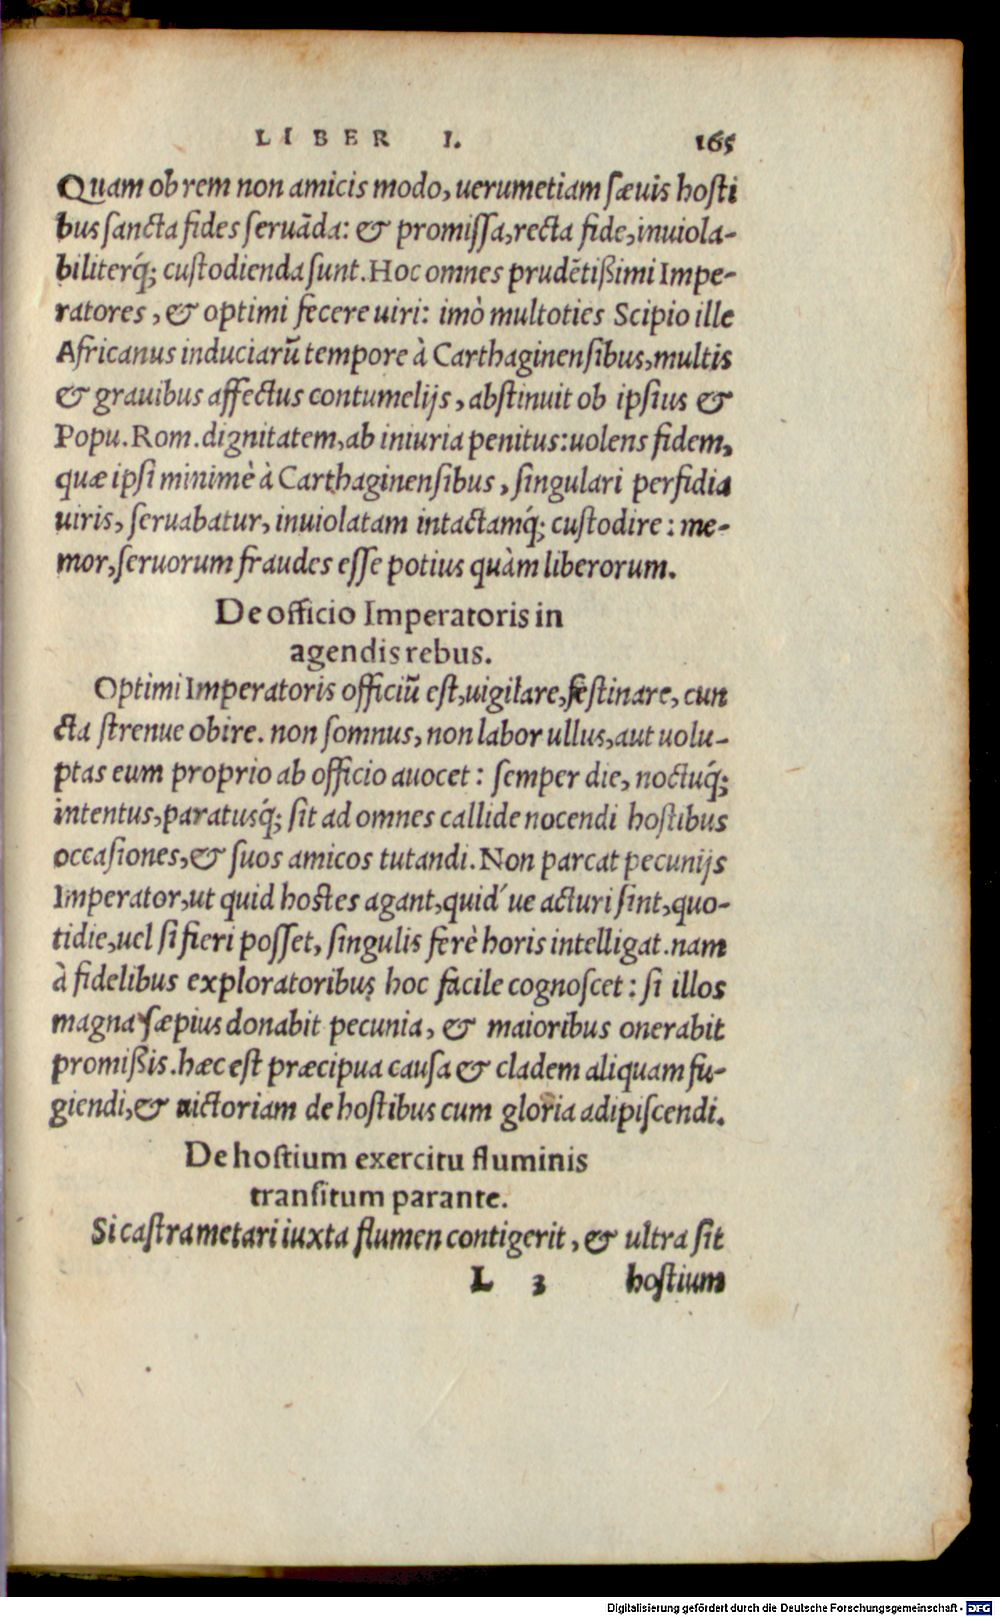 LIBER I. 165
Quam ob rem non amicis modo, uerumetiam sæuis hosti
bus sancta fides seruāda: & promissa, recta fide, inuiola-
biliterq́; custodienda sunt. Hoc omnes prudētißimi Impe-
ratores, & optimi fecere uiri: imò multoties Scipio ille
Africanus induciarū tempore à Carthaginensibus, multis
& grauibus affectus contumelijs, abstinuit ob ipsius &
Popu. Rom. dignitatem, ab iniuria penitus: uolens fidem,
quæ ipsi minimè à Carthaginensibus, singulari perfidia
uiris, seruabatur, inuiolatam intactamq́; custodire: me-
mor, seruorum fraudes esse potius quàm liberorum.
De officio Imperatoris in
agendis rebus.
Optimi Imperatoris officiū est, uigilare, festinare, cun
cta strenue obire. non somnus, non labor ullus, aut uolu-
ptas eum proprio ab officio auocet: semper die, noctuq́;
intentus, paratusq́; sit ad omnes callide nocendi hostibus
occasiones, & suos amicos tutandi. Non parcat pecunijs
Imperator, ut quid hostes agant, quid´ue acturi sint, quo-
tidie, uel si fieri posset, singulis ferè horis intelligat. nam
à fidelibus exploratoribus hoc facile cognoscet: si illos
magna sæpius donabit pecunia, & maioribus onerabit
promißis. hæc est præcipua causa & cladem aliquam fu-
giendi, & uictoriam de hostibus cum gloria adipiscendi.
De hostium exercitu fluminis
transitum parante.
Si castrametari iuxta flumen contigerit, & ultra sit
L 3 hostium
Digitalisierung gefördert durch die Deutsche Forschungsgemeinschaft - DFG